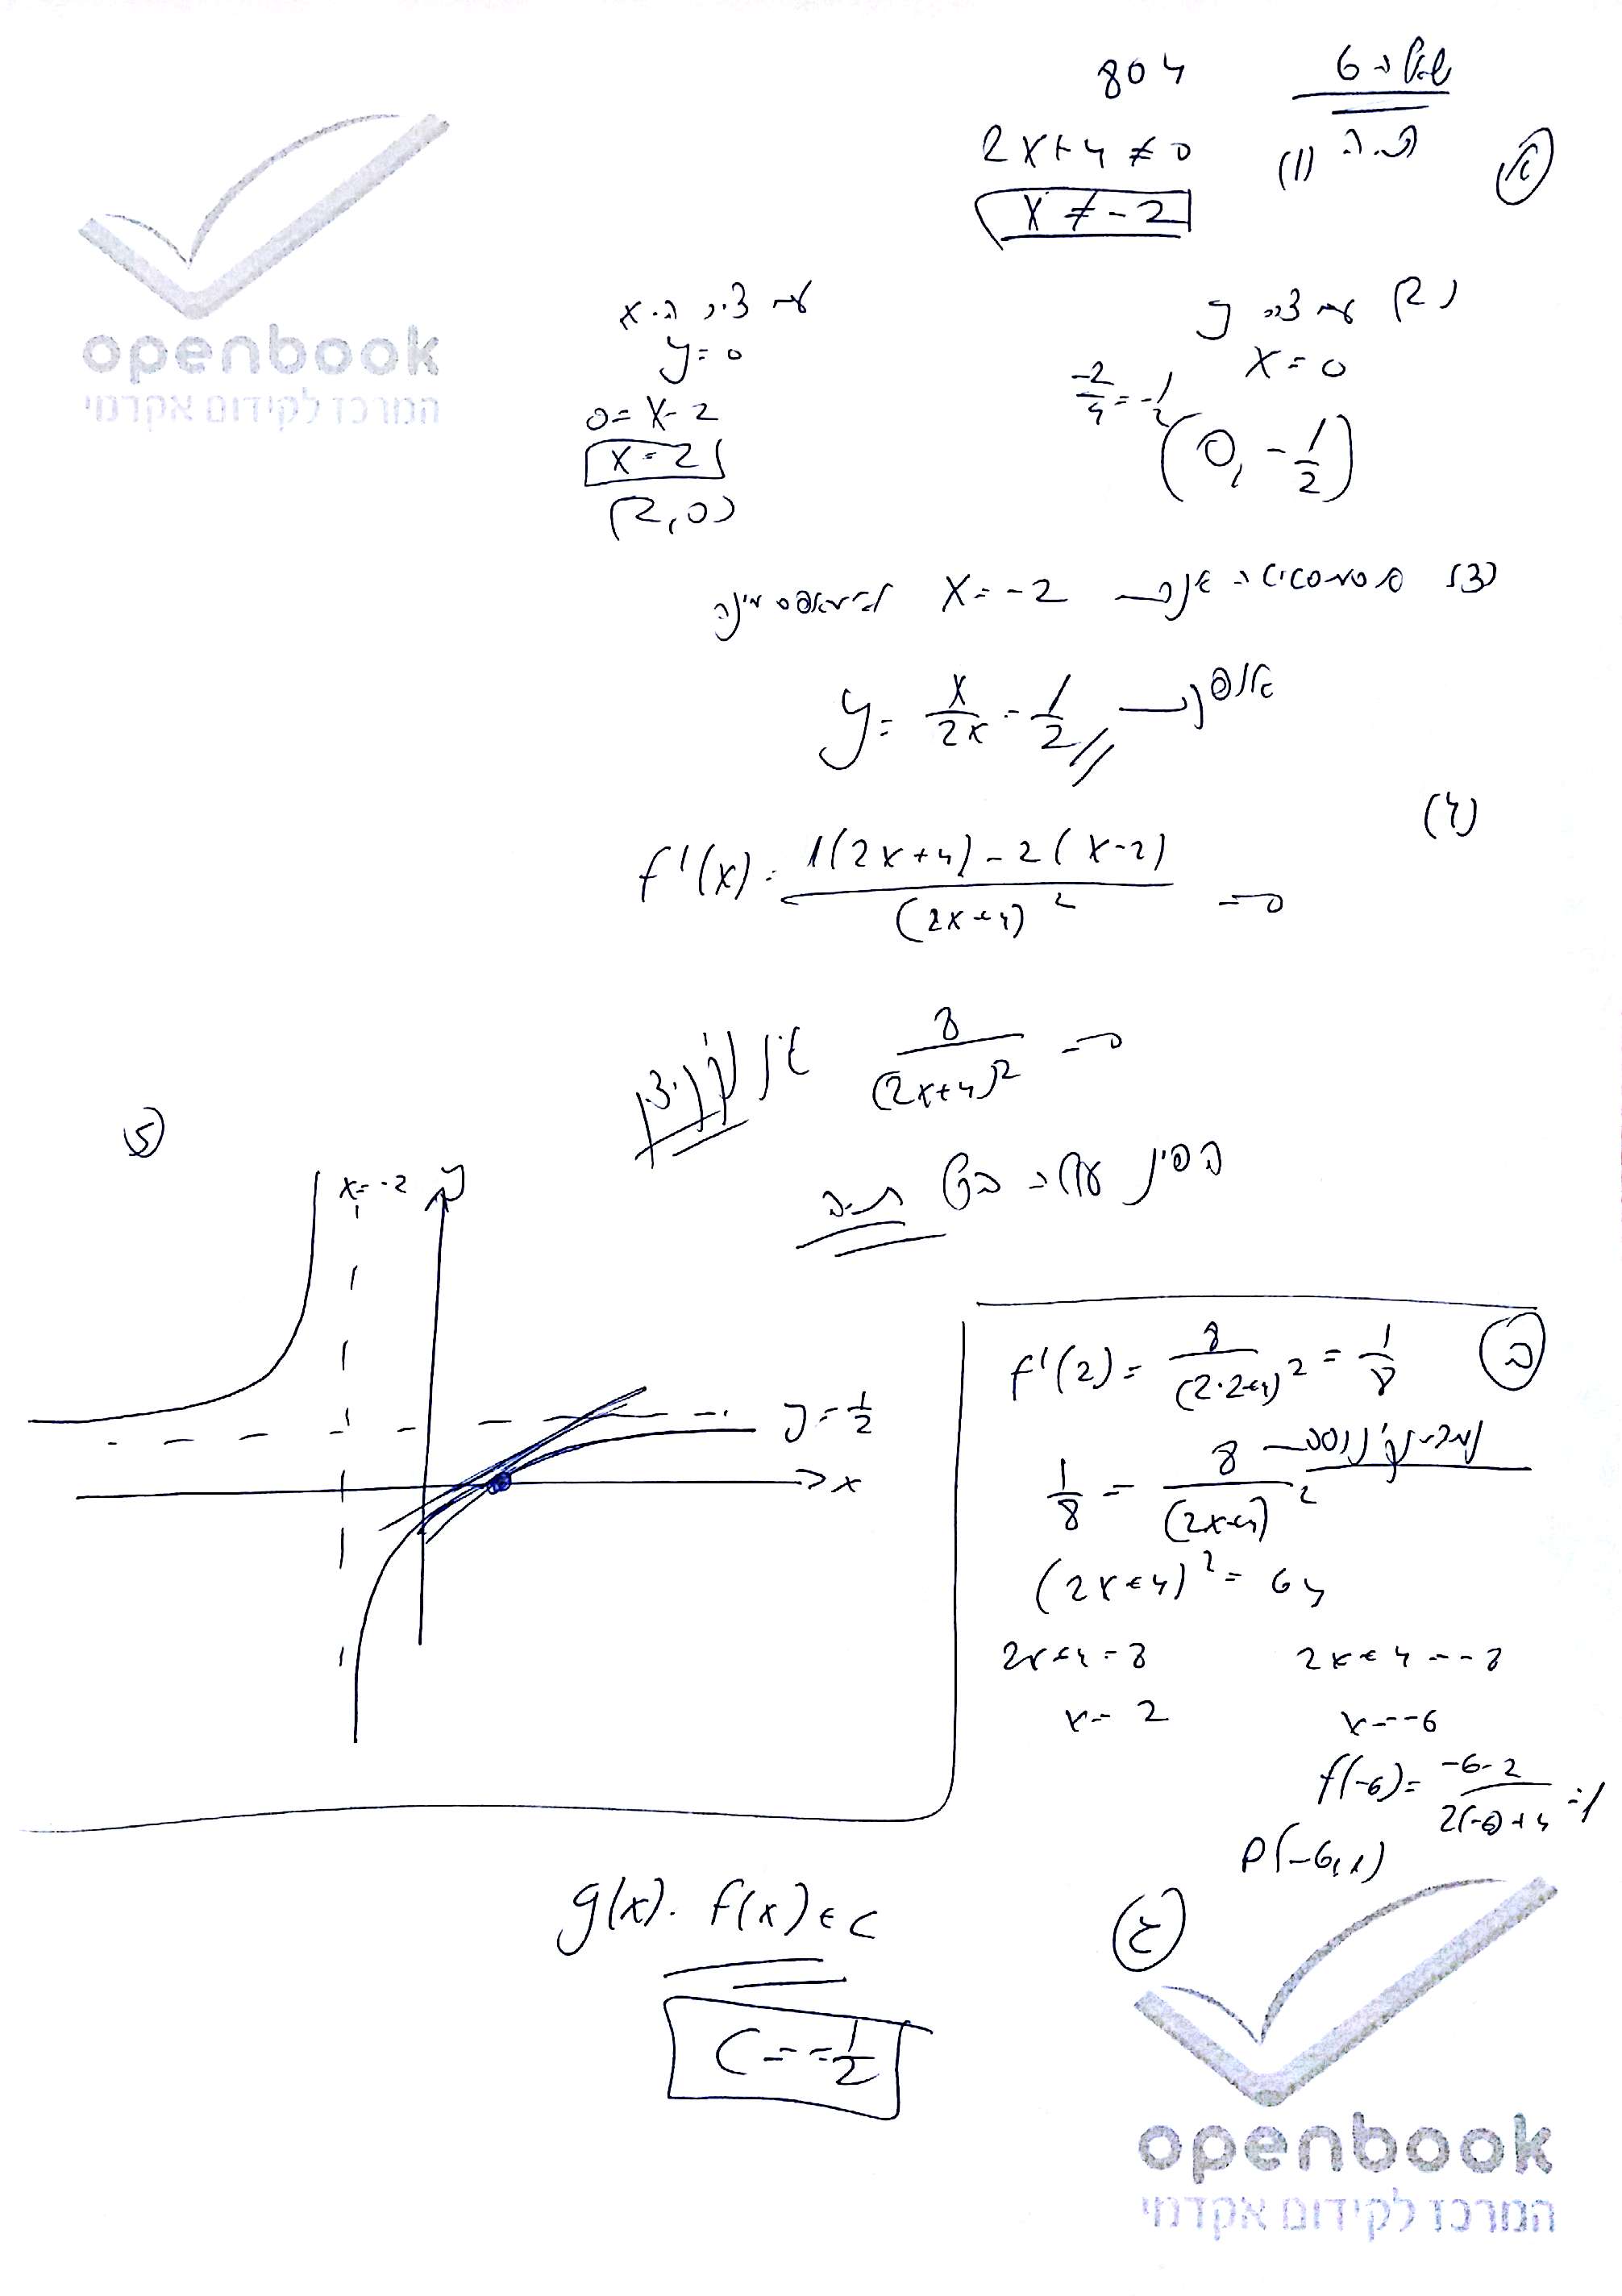 שאלה 6
804
א
(1) ת.ה
2x+4≠0
x≠-2
(2) עם ציר y
x=0
-2/4=-1/2
(0,-1/2)
עם ציר ה-x
y=0
0=x-2
x=2
(2,0)
(3) אסימפטוטה
x=-2
y=x/2x=1/2
(4)
f'(x)=1(2x+4)-2(x-2)/(2x+4)²
=0
8/(2x+4)²=0
אין קיצון
עולה בכל ת.ה
5
x=-2
y
y=1/2
x
ב
f'(2)=8/(2·2+4)²=1/8
1/8=8/(2x+4)²
(2x+4)²=64
2x+4=8 2x+4=-8
x=2 x=-6
f(-6)=-6-2/2(-6)+4=1
P(-6,1)
ג
g(x)=f(x)+c
C=-1/2
openbook
המרכז לקידום אקדמי
openbook
המרכז לקידום אקדמי